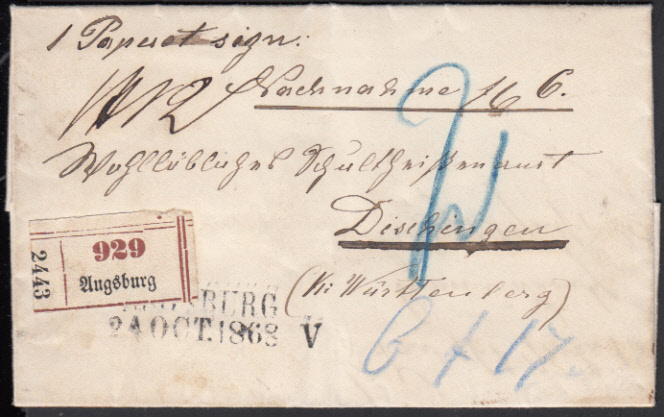 1 Paquet sign:
Nachnahme 6.
Wohllöbliches Schultheißenamt
Dischingen
(in Württemberg)
929
2443
Augsburg
AUGSBURG
24 OCT. 1868 V
6 f 17.